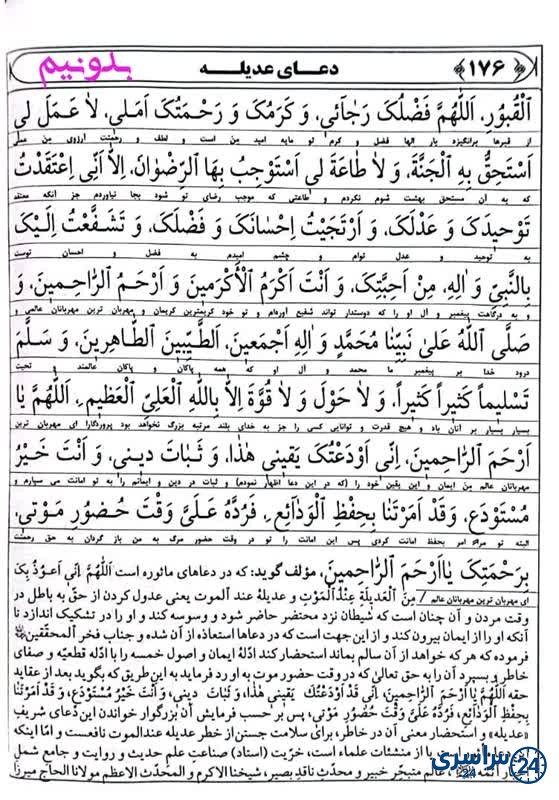 بدونیم
دعای عدیله
﴿۱۷۶﴾
اَلْقُبُورِ، اَللّٰهُمَّ فَضْلُكَ رَجٰائى، وَ كَرَمُكَ وَ رَحْمَتُكَ اَمَلى، لاٰ عَمَلَ لى
از قبرها برانگیزد بار الها فضل و کرم تو مایه امید من است و لطف و رحمتت آرزوی من عملی
اَسْتَحِقُّ بِهِ ٱلْجَنَّةَ، وَ لاٰ طٰاعَةَ لى اَسْتَوْجِبُ بِهَا ٱلرِّضْوٰانَ، اِلاّٰ اَنّى اِعْتَقَدْتُ
که به آن مستحق بهشت شوم نکردم و طاعتی که موجب رضای تو شود بجا نیاوردم جز آنکه معتقد
تَوْحيدَكَ وَ عَدْلَكَ، وَ ٱرْتَجَيْتُ اِحْسٰانَكَ وَ فَضْلَكَ، وَ تَشَفَّعْتُ اِلَيْكَ
به توحید و عدل توام و چشم امیدم به فضل و احسان توست
بِالنَّبِيِّ وَ اٰلِهِ، مِنْ اَحِبَّتِكَ، وَ اَنْتَ اَكْرَمُ ٱلْأَكْرَمينَ وَ اَرْحَمُ ٱلرّٰاحِمينَ، وَ
و به درگاهت پیغمبر و آل او را که دوستدار تواند شفیع آورده‌ام و تو خود کریمترین کریمان و مهربان ترین مهربانان عالمی و
صَلَّى ٱللّٰهُ عَلىٰ نَبِيِّنٰا مُحَمَّدٍ وَ اٰلِهِ اَجْمَعينَ، اَلطَّيِّبينَ ٱلطّٰاهِرينَ، وَ سَلَّمَ
درود خدا بر پیغمبر ما محمد و آل او که همه پاکان و پاکان عالمند و تحیت
تَسْليماً كَثيراً كَثيراً، وَ لاٰ حَوْلَ وَ لاٰ قُوَّةَ اِلاّٰ بِاللّٰهِ ٱلْعَلِيِّ ٱلْعَظيمِ، اَللّٰهُمَّ يٰا
بسیار بسیار بر آنان باد و هیچ قدرت و توانایی کسی را جز به خدای بلند مرتبه بزرگ نخواهد بود پروردگارا ای مهربان ترین
اَرْحَمَ ٱلرّٰاحِمينَ، اِنّى اَوْدَعْتُكَ يَقينى هٰذٰا، وَ ثَبٰاتَ دينى، وَ اَنْتَ خَيْرُ
مهربانان عالم من ایمان و این یقین خود را (که در این دعا اظهار نمودم) و ثبات در دین و ایمانم را به تو امانت می سپارم و
مُسْتَوْدَعٍ، وَقَدْ اَمَرْتَنٰا بِحِفْظِ ٱلْوَدٰائِعِ، فَرُدَّهُ عَلَيَّ وَقْتَ حُضُورِ مَوْتى،
البته تو مرا امر بحفظ امانت کردی پس این امانت را تو در وقت حضور مرگ به من باز گردان به حق رحمتت
بِرَحْمَتِكَ يٰا اَرْحَمَ ٱلرّٰاحِمينَ، مؤلف گوید: که در دعاهای ماثوره است اَللّٰهُمَّ اِنّى اَعُوذُ بِكَ
ای مهربان ترین مهربانان عالم / مِنَ ٱلْعَديلَةِ عِنْدَ ٱلْمَوْتِ و عدیلۀ عند الموت یعنی عدول کردن از حق به باطل در
وقت مردن و آن چنان است که شیطان نزد محتضر حاضر شود و وسوسه کند و او را در تشکیک اندازد تا
آنکه او را از ایمان بیرون کند و از این جهت است که در دعاها استعاذه از آن شده و جناب فخر المحققین
فرموده که هر که خواهد از آن سالم بماند استحضار کند ادلّۀ ایمان و اصول خمسه را با ادلّه قطعیّه و صفای
خاطر و بسپرد آن را به حق تعالی که در وقت حضور موت به او رد فرماید به این طریق که بگوید بعد از عقاید
حقه اَللّٰهُمَّ يٰا اَرْحَمَ ٱلرّٰاحِمينَ، اِنّى قَدْ اَوْدَعْتُكَ يَقينى هٰذٰا، وَ ثَبٰاتَ دينى، وَ اَنْتَ خَيْرُ مُسْتَوْدَعٍ، وَ قَدْ اَمَرْتَنٰا
بِحِفْظِ ٱلْوَدٰائِعِ، فَرُدَّهُ عَلَيَّ وَقْتَ حُضُورِ مَوْتى، پس بر حسب فرمایش آن بزرگوار خواندن این دعای شریف
«عدیله» و استحضار معنی آن در خاطر، برای سلامت جستن از خطر عدیله عند الموت نافعست و امّا اینکه
یا از منشئات علماء است، خرّیت (استاد) صناعتِ علم حدیث و روایت و جامع شمل
عالم متبحّر خبیر و محدّث ناقد بصیر، شیخنا الاکرم و المحدّث الاعظم مولانا الحاج میرزا
سراسری 24